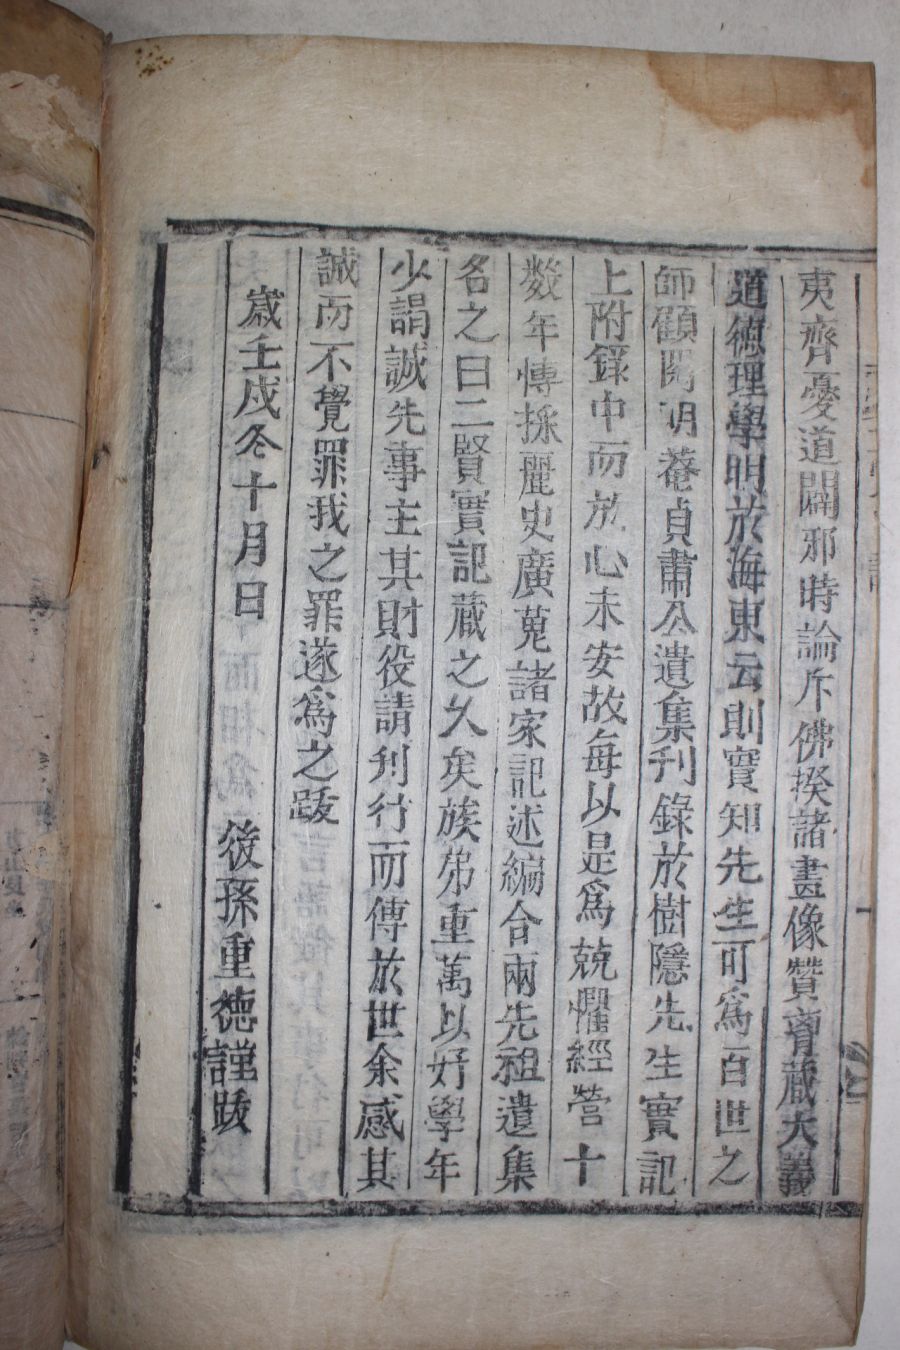 夷齊憂道闢邪時論斥佛揆諸畫像贊齎蔵大義
道德理學明於海東云則寔知先生可爲百世之
師顧閔朙菴貞肅公遺集刊錄於樹隱先生實記
上附錄中而放心未安故每以是爲兢懼經營十
數年慱採麗史廣蒐諸家記述編合兩先祖遺集
名之曰二賢實記蔵之久矣族弟重萬以好學年
少謂誠先事主其財役請刋行而傳於世余感其
誠而不覺罪我之罪遂爲之跋
歲壬戌冬十月日 後孫重德謹跋